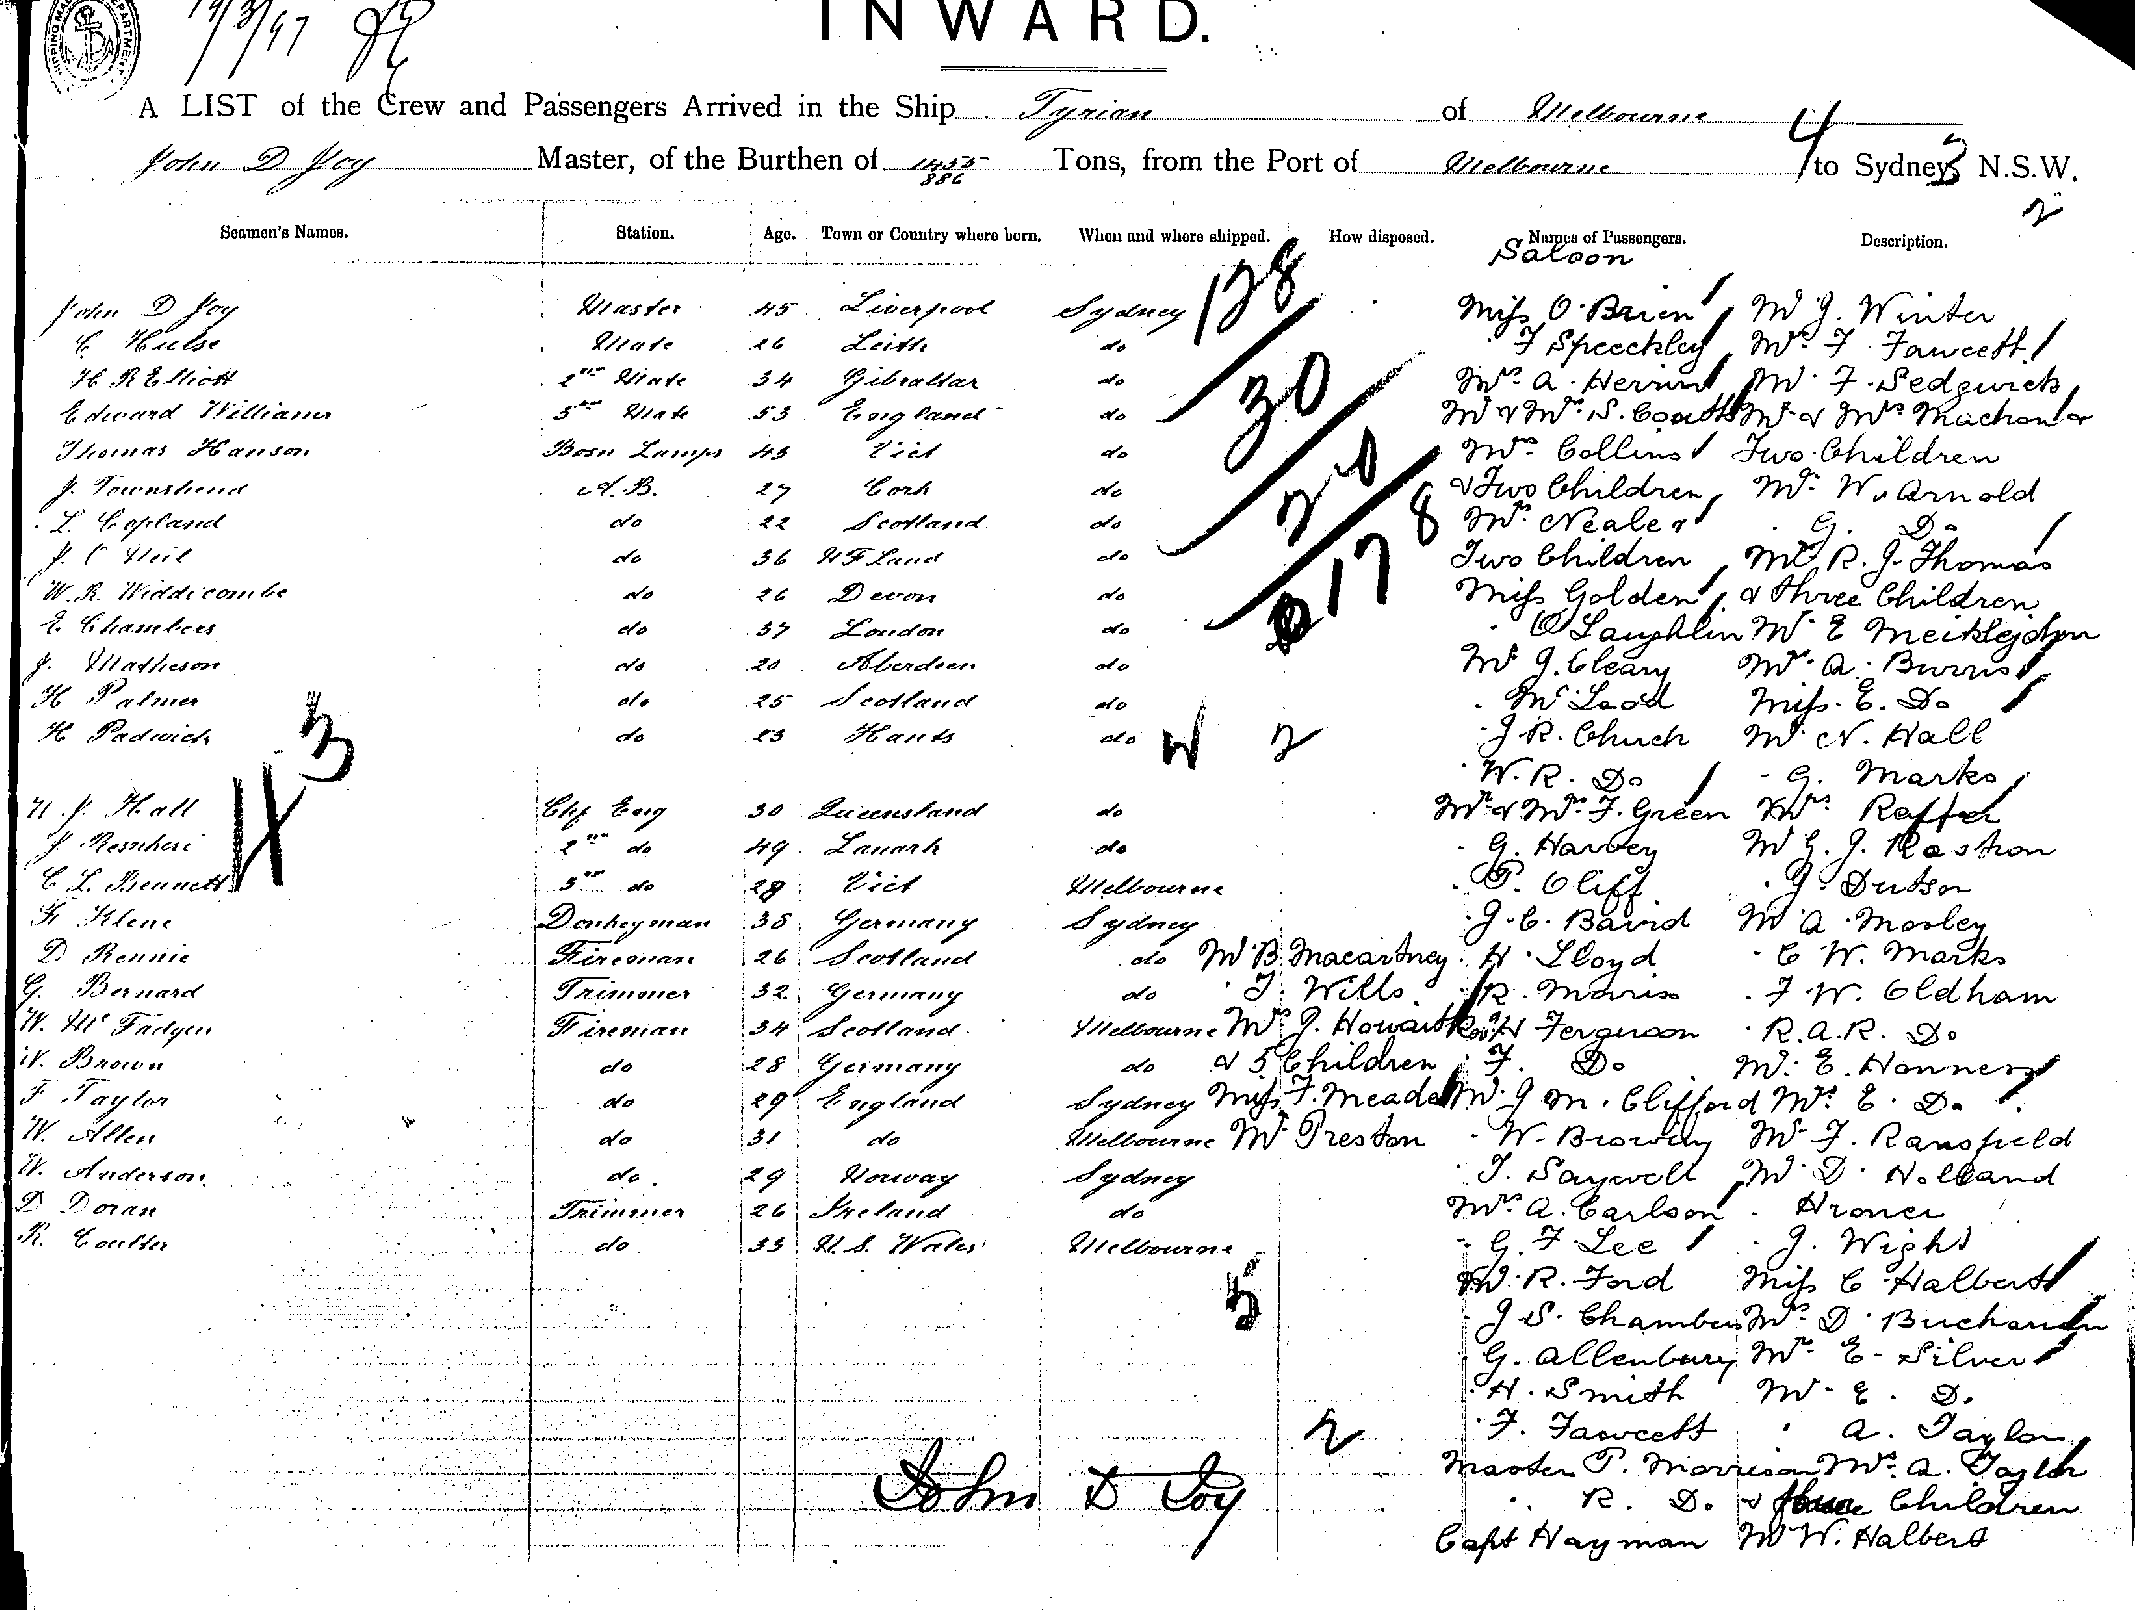 INWARD.
A LIST of the Crew and Passengers Arrived in the Ship Tyrian of Melbourne
John D Joy Master, of the Burthen of 1455 886 Tons, from the Port of Melbourne to Sydney N.S.W.
Seamen's Names. Station. Age. Town or Country where born. When and where shipped. How disposed. Names of Passengers. Description.
Saloon
John D Joy Master 45 Liverpool Sydney Miss O'Brien Mr J. Winter
C Hulse Mate 26 Leith do F Speechley Mrs F. Fawcett
H R Elliott 2nd Mate 34 Gibraltar do Mrs A. Mr F. Sedgwick
Edward Williams 3rd Mate 53 England do Mr & Mrs S. Coutts Mr & Mrs
Thomas Hanson Bosn Lamps 43 Vict do Mrs Collins Two Children
J. Townshend A.B. 27 Cork do & Two Children Mr W. Arnold
L. Copland do 22 Scotland do Mrs Neale & G. Do
J. C Neil do 36 N F Land do Two Children Mr R. J. Thomas
W. R. Widdicombe do 26 Devon do Miss Golden & three Children
E. Chambers do 37 London do O'Laughlin Mr E Meiklejohn
J. Matheson do 20 Aberdeen do Mr J. Cleary Mrs A. Burris
H Palmer do 25 Scotland do McLeod Miss E. Do
H Padwick do 23 Hants do J. R. Church Mr N. Hall
W. R. Do G. Marks
N. J. Hall Chf Eng 30 Queensland do Mr & Mrs F. Green Mrs Raffer
J. 2nd do 49 Lanark do G. Harvey Mr G. J. Rostron
C L. Bennett 3rd do 28 Vict Melbourne P. Cliff J. Dutson
F. Klene Donkeyman 38 Germany Sydney J. C. Baird Mr A. Mosley
D Rennie Fireman 26 Scotland do Mr B. Macartney H. Lloyd C W. Marks
G. Bernard Trimmer 32 Germany do T. Wills R. Morris F W. Oldham
W. McFadyen Fireman 34 Scotland Melbourne Mrs J. Howarth Rev H Ferguson R. A. R. Do
W. Brown do 28 Germany do & 5 Children F. Do Mr E. Hannery
F Taylor do 29 England Sydney Miss F. Meade Mr J M. Clifford Mrs E. Do
W. Allen do 31 do Melbourne Mr Preston W. Mr F. Ransfield
W. Anderson do 29 Norway Sydney T. Saywell Mr D. Holland
D Doran Trimmer 26 Ireland do Mrs A. Carlson
R. Coulter do 33 N. S. Wales Melbourne G. F. Lee J. Wight
Mr R. Ford Miss C Halbert
J S. Chambers Mrs D. Buchanan
G. Allenbury Mrs E. Silver
H. Smith Mr E. D.
F. Fawcett A. Taylor
Master P. Morrison Mrs A. Taylor
R. D. & Children
John D Joy
Capt Hayman Mr W. Halbert